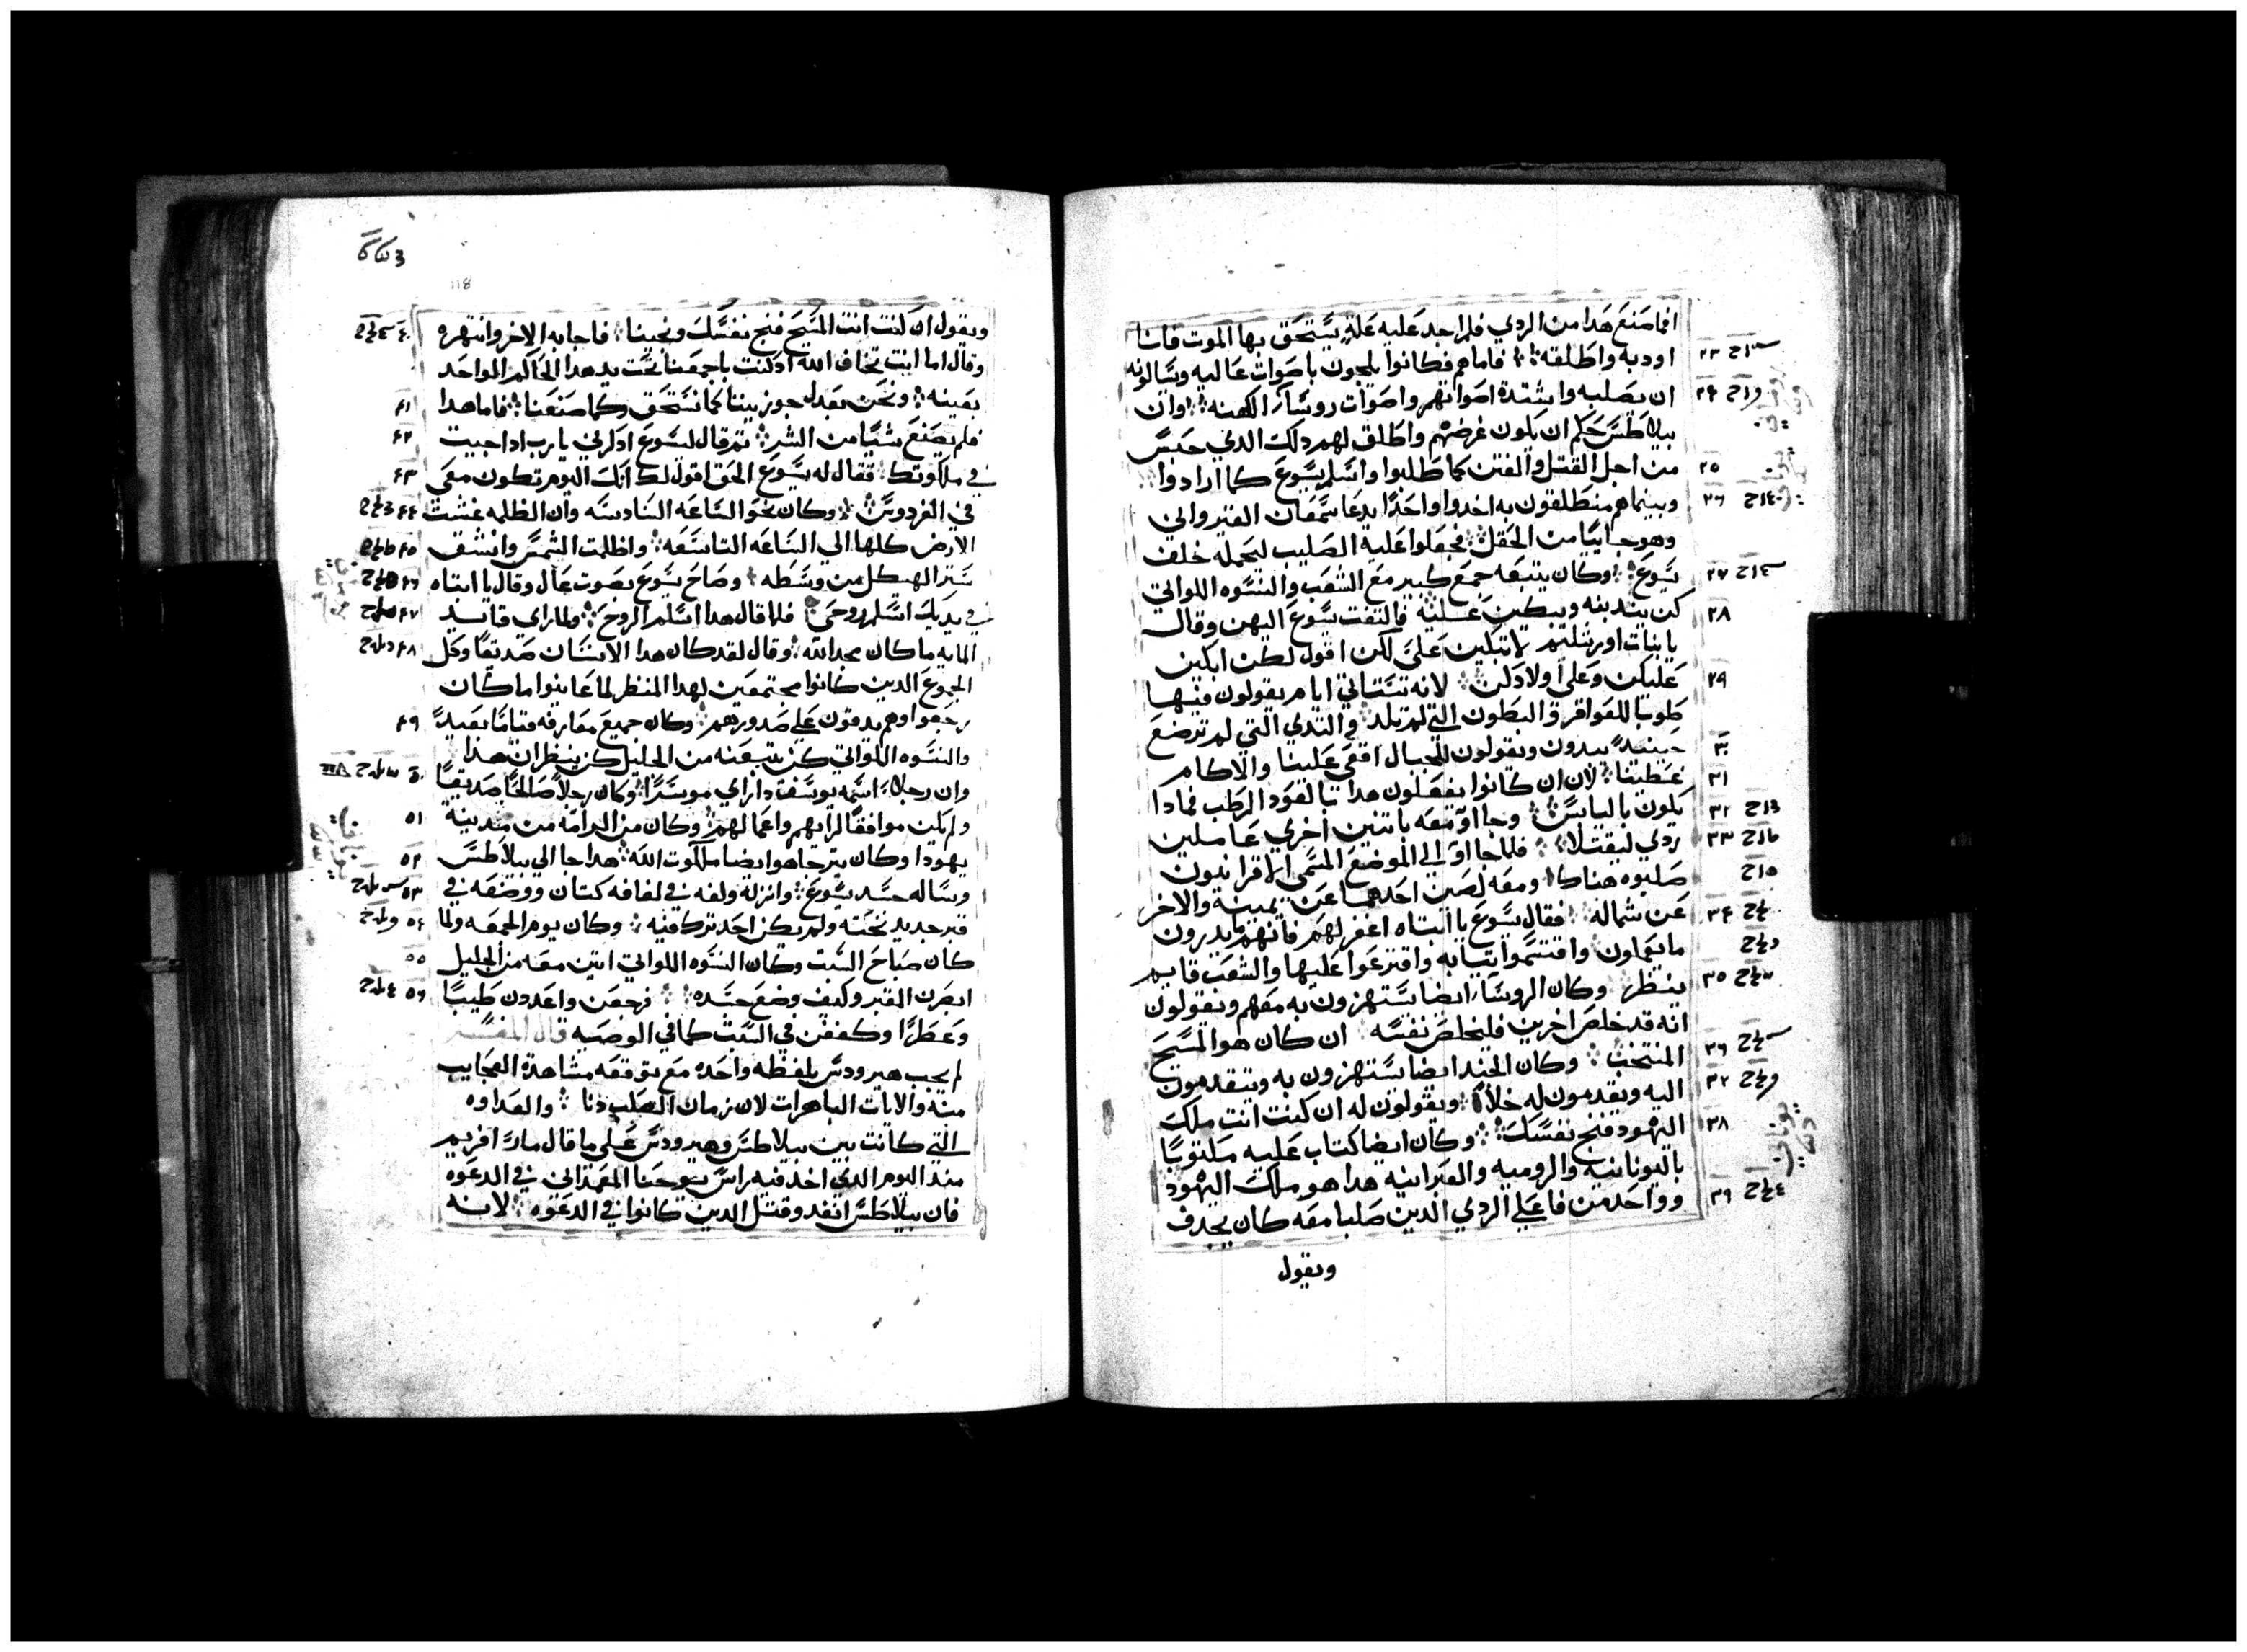 افاصنع هدا من الردي فلم اجد عليه علة يستحق بها الموت فانا
اودبه واطلقه فاما هم فكانوا يلجون باصوات عاليه ويسالونه
ان يصلبه واشتدة اصواتهم واصوات روسا الكهنه وان
بيلاطس حكم ان يكون غرضهم واطلق لهم دلك الدي حبس
من اجل القتل والفتن كما طلبوا واسلم يسوع كما ارادوا
وبينما هم منطلقون به اخدوا واحدا يدعا سمعان القيرواني
وهو جاييا من الحقل فجعلوا عليه الصليب ليحمله خلف
يسوع وكان يتبعه جمع كبير مع الشعب والنسوه اللواتي
كن يندبنه ويبكين عليه فالتفت يسوع اليهن وقال
يا بنات اورشليم لا تبكين علي لكن اقول لكن ابكين
عليكن وعلي اولادكن لانه ستاتي ايام يقولون فيها
طوبا للعواقر والبطون التي لم تلد والتدي التي لم ترضع
حينيد يبدون ويقولون للجبال اقعي علينا والاكام
غطينا لان ان كانوا يفعلون هدا بالعود الرطب فمادا
يكون باليابس وجااو معه باتنين اخري عاملين
ردي ليقتلا فلما جااو الي الموضع المسمي الاقرانيون
صلبوه هناك ومعه لصين احدهما عن يمينه والاخر
عن شماله فقال يسوع يا ابتاه اغفر لهم فانهم ما يدرون
ما يعملون واقتسموا تيابه واقترعوا عليها والشعب قايم
ينظر وكان الروسا ايضا يستهزون به معهم ويقولون
انه قد خلص اخرين فليخلص نفسه ان كان هو المسيح
المنتخب وكان الجند ايضا يستهزون به ويتقدمون
اليه ويقدمون له خلا ويقولون له ان كنت انت ملك
اليهود فنج نفسك وكان ايضا كتاب عليه مكتوبا
باليونانيه والروميه والعبرانيه هدا هو ملك اليهود
وواحد من فاعلي الردي الدين صلبا معه كان يجدف
ويقول
118
ويقول ان كنت انت المسيح فنج نفسك ونجينا فاجابه الاخر وانتهره
وقال اما انت تخاف الله اد كنت باجمعنا تحت يد هدا الحاكم الواحد
بعينه ونحن بعدل جوزينا كما نستحق وكما صنعنا فاما هدا
فلم يصنع شيا من الشر تم قال ليسوع ادكرني يا رب ادا جيت
في ملكوتك فقال له يسوع الحق اقول لك انك اليوم تكون معي
في الفردوس وكان نحو الساعه السادسه وان الظلمه غشت
الارض كلها الي الساعه التاسعه واظلمت الشمس وانشق
ستر الهيكل من وسطه وصاح يسوع بصوت عال وقال يا ابتاه
في يديك اسلم روحي فلما قال هدا اسلم الروح ولما راي قايد
المايه ما كان مجد الله وقال لقد كان هدا الانسان صديقا وكل
الجموع الدين كانوا مجتمعين لهدا المنظر لما عاينوا ما كان
رجعوا وهم يدقون علي صدورهم وكان جميع معارفه قياما بعيدا
والنسوه اللواتي كن يتبعنه من الجليل كن ينظران هدا
وان رجلا اسمه يوسف دا راي موسرا وكان رجلا صالحا صديقا
ولم يكن موافقا لرايهم واعمالهم وكان من الرامه من مدينة
يهودا وكان يترجا هو ايضا ملكوت الله هدا جا الي بيلاطس
وساله جسد يسوع وانزله ولفه في لفافه كتان ووضعه في
قبر جديد نحته ولم يكن احد ترك فيه وكان يوم الجمعه ولما
كان صباح السبت وكان النسوه اللواتي اتين معه من الجليل
ابصرن القبر وكيف وضع جسده فرجعن واعددن طيبا
وعطرا وكففن في السبت كما في الوصيه قال المفسر
لم يجب هيرودس بلفظه واحده مع توقعه مشاهدة العجايب
منه والايات الباهرات لان زمان الصلب دنا والعداوه
التي كانت بين بيلاطس وهيرودس علي ما قال مار افريم
مند اليوم الدي اخد فيه راس يوحنا المعمداني في الدعوه
فان بيلاطس انفد وقتل الدين كانوا في الدعوه لانه